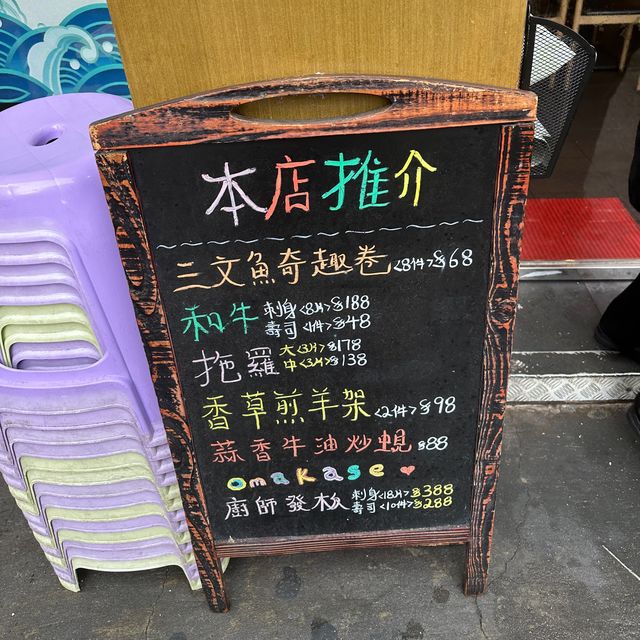 本店推介
三文魚奇趣卷<8件>$68
和牛 刺身<8片>$188
壽司<1件>$48
拖羅 大<3片>$178
中<3片>$138
香草煎羊架<2件>$98
蒜香牛油炒蜆$88
omakase
廚師發板 刺身<18片>$388
壽司<10件>$288